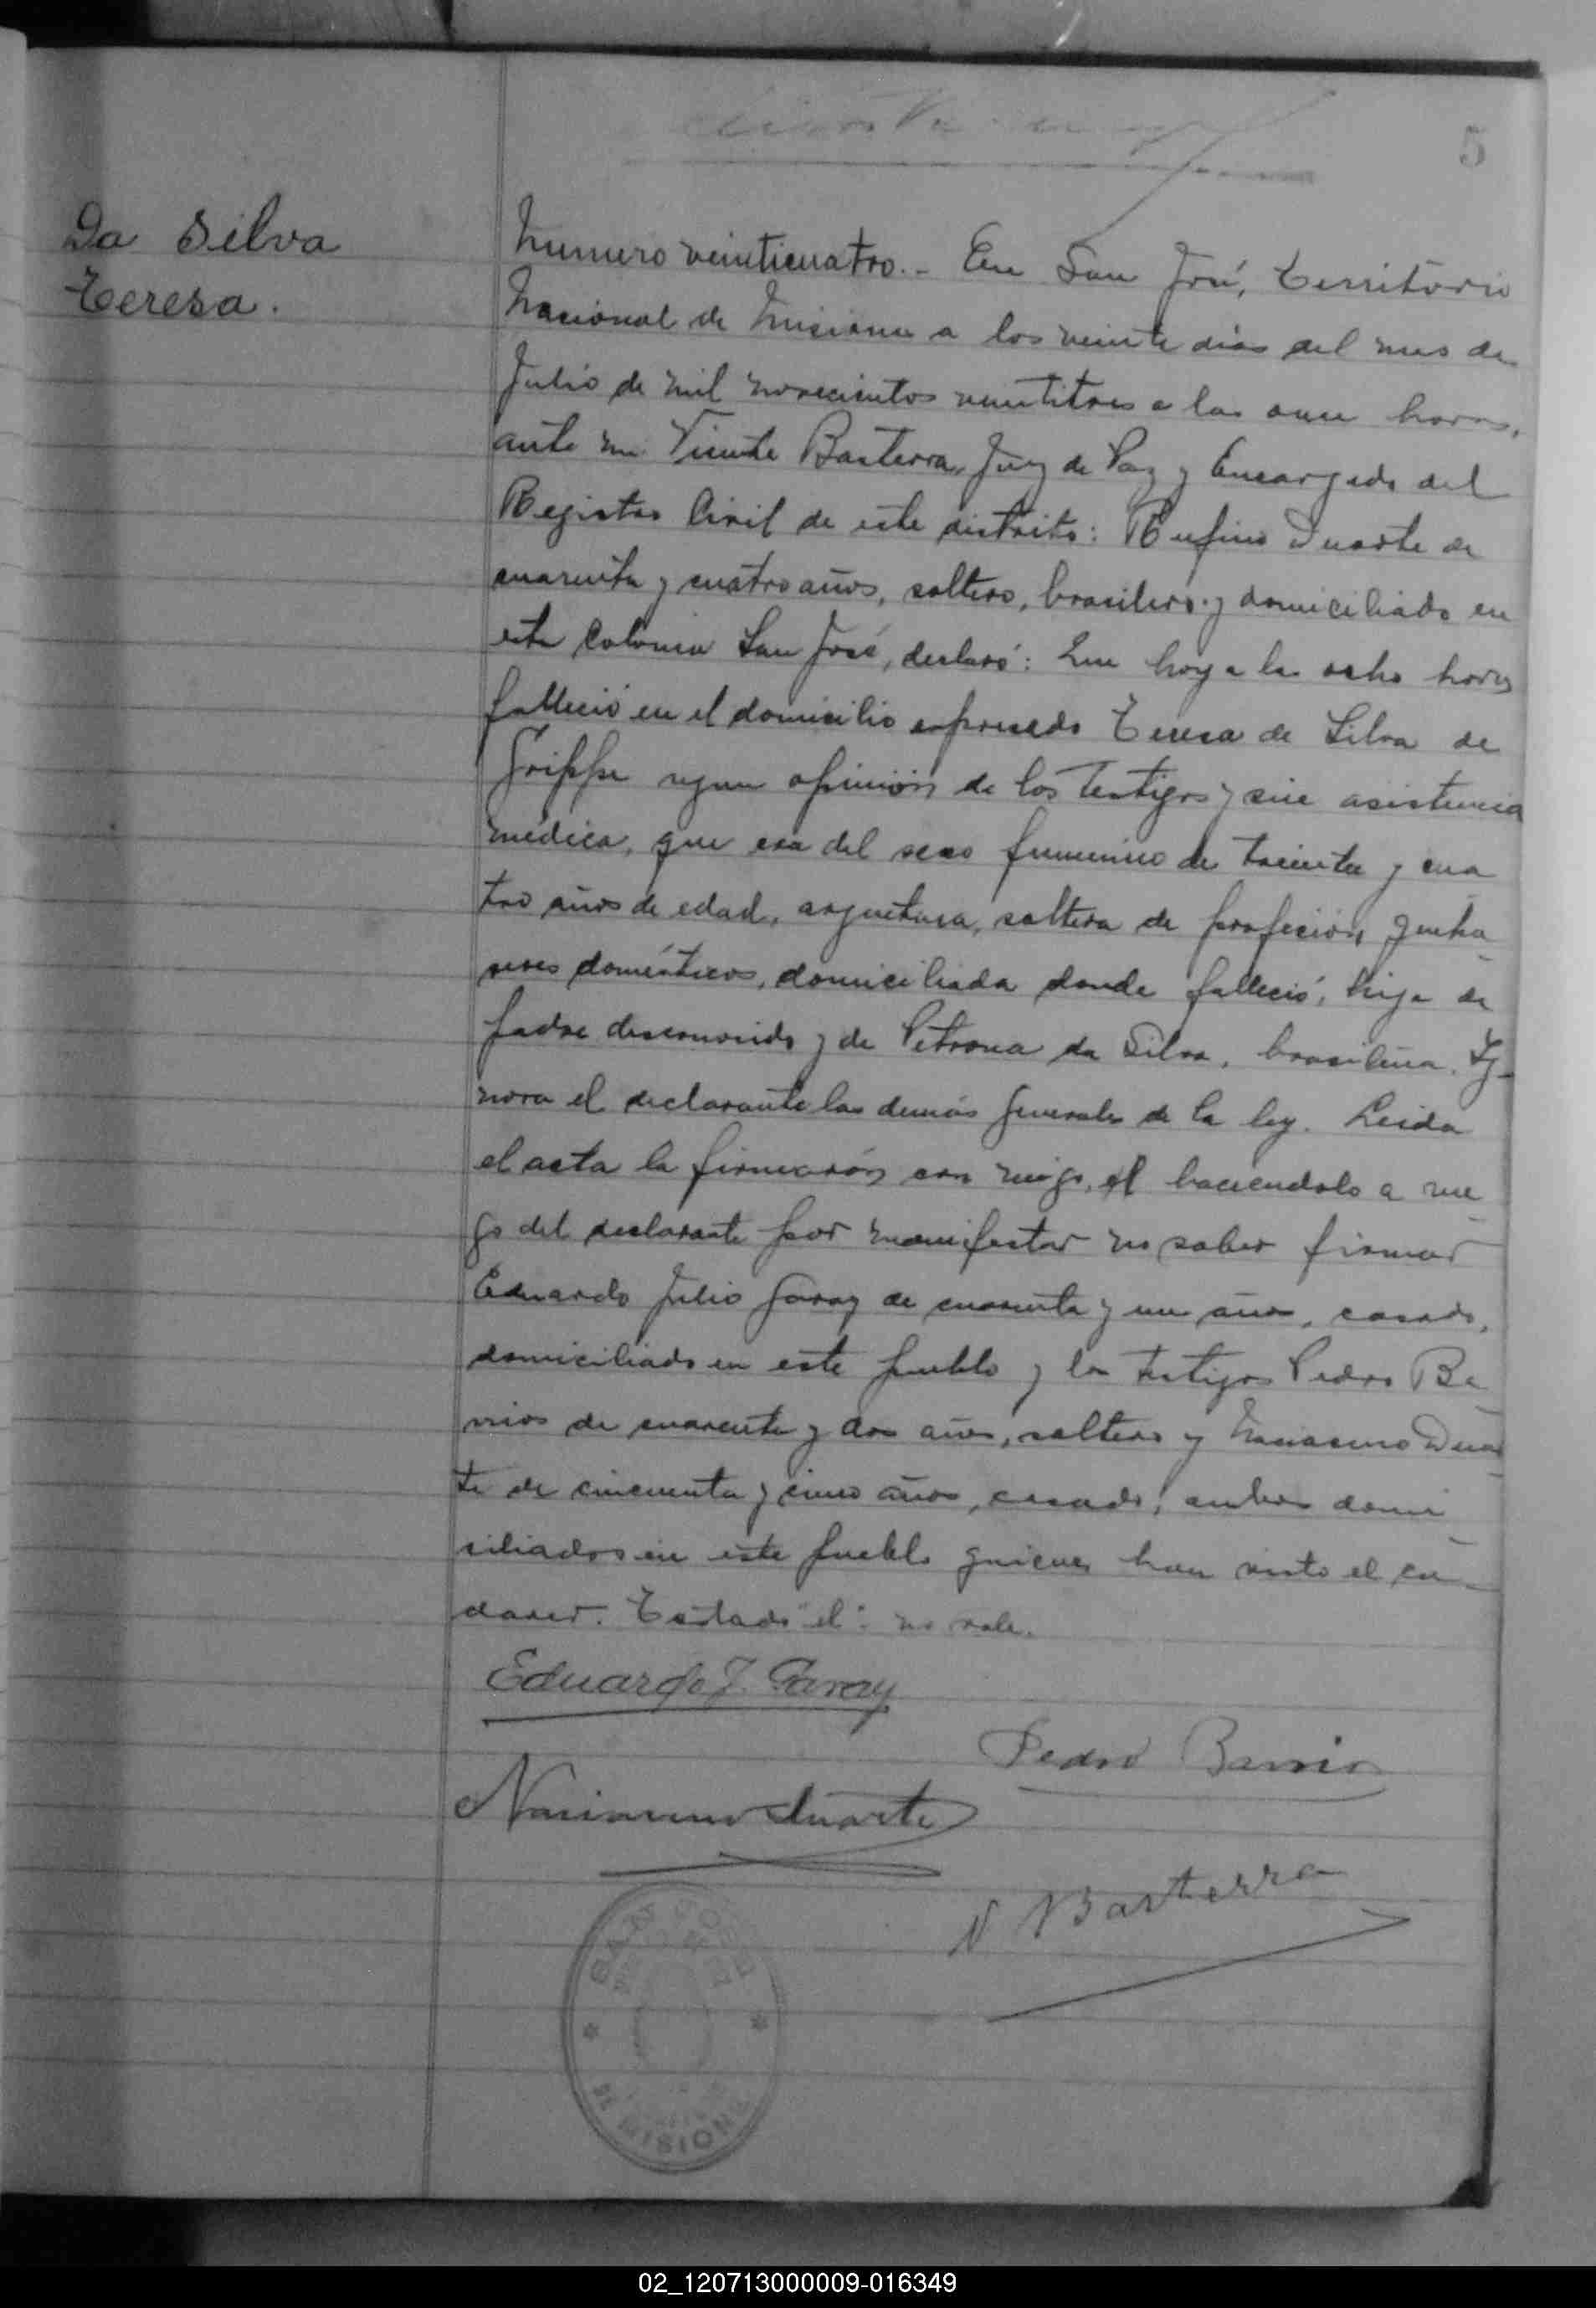 5
Da Silva
Teresa.
Numero veinticuatro.- En San José, Territorio
Nacional de Misiones a los veinte dias del mes de
Julio de mil novecientos veintitres a las once horas,
ante mi Vicente Basterra, Juez de Paz y Encargado del
Registro Civil de este distrito: Rufino Duarte de
cuarenta y cuatro años, soltero, brasilero y domiciliado en
esta Colonia San José, declaró: Que hoy a las ocho horas
falleció en el domicilio expresado Teresa de Silva de
Grippe segun opinión de los testigos y sin asistencia
médica, que era del sexo femenino de treinta y cua
tro años de edad, argentina, soltera de profeción queha
seres domésticos, domiciliada donde falleció, hija de
padre desconocido y de Petrona da Silva, brasilera. Ig-
nora el declarante las demás generales de la ley. Leida
el acta la firmarón con migo, el haciendolo a rue
go del declarante por manifestar no saber firmar
Eduardo Julio Garay de cuarenta y un años, casado,
domiciliado en este pueblo y los testigos Pedro Be
rrios de cuarenta y dos años, soltero y Nacianceno Duar
te de cincuenta y cinco años, casado, ambos domi
siliados en este pueblo quienes han visto el ca-
daver. Testado "el": no vale.
Eduardo J. Garay
Pedro Berrios
Nacianceno Duarte
V Basterra
SAN JOSÉ
MISIONES
02_120713000009-016349